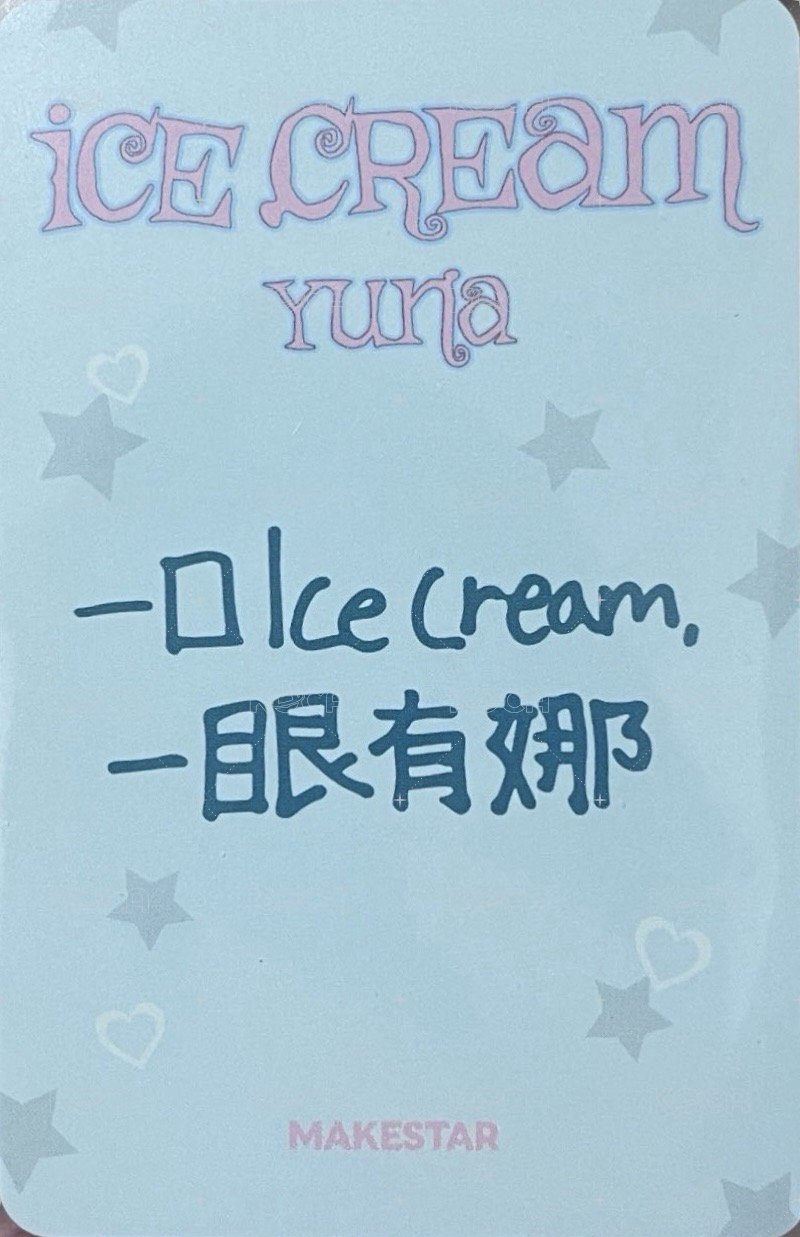 iCE CREam
Yuna
一口 Ice Cream,
一眼有娜
MAKESTAR